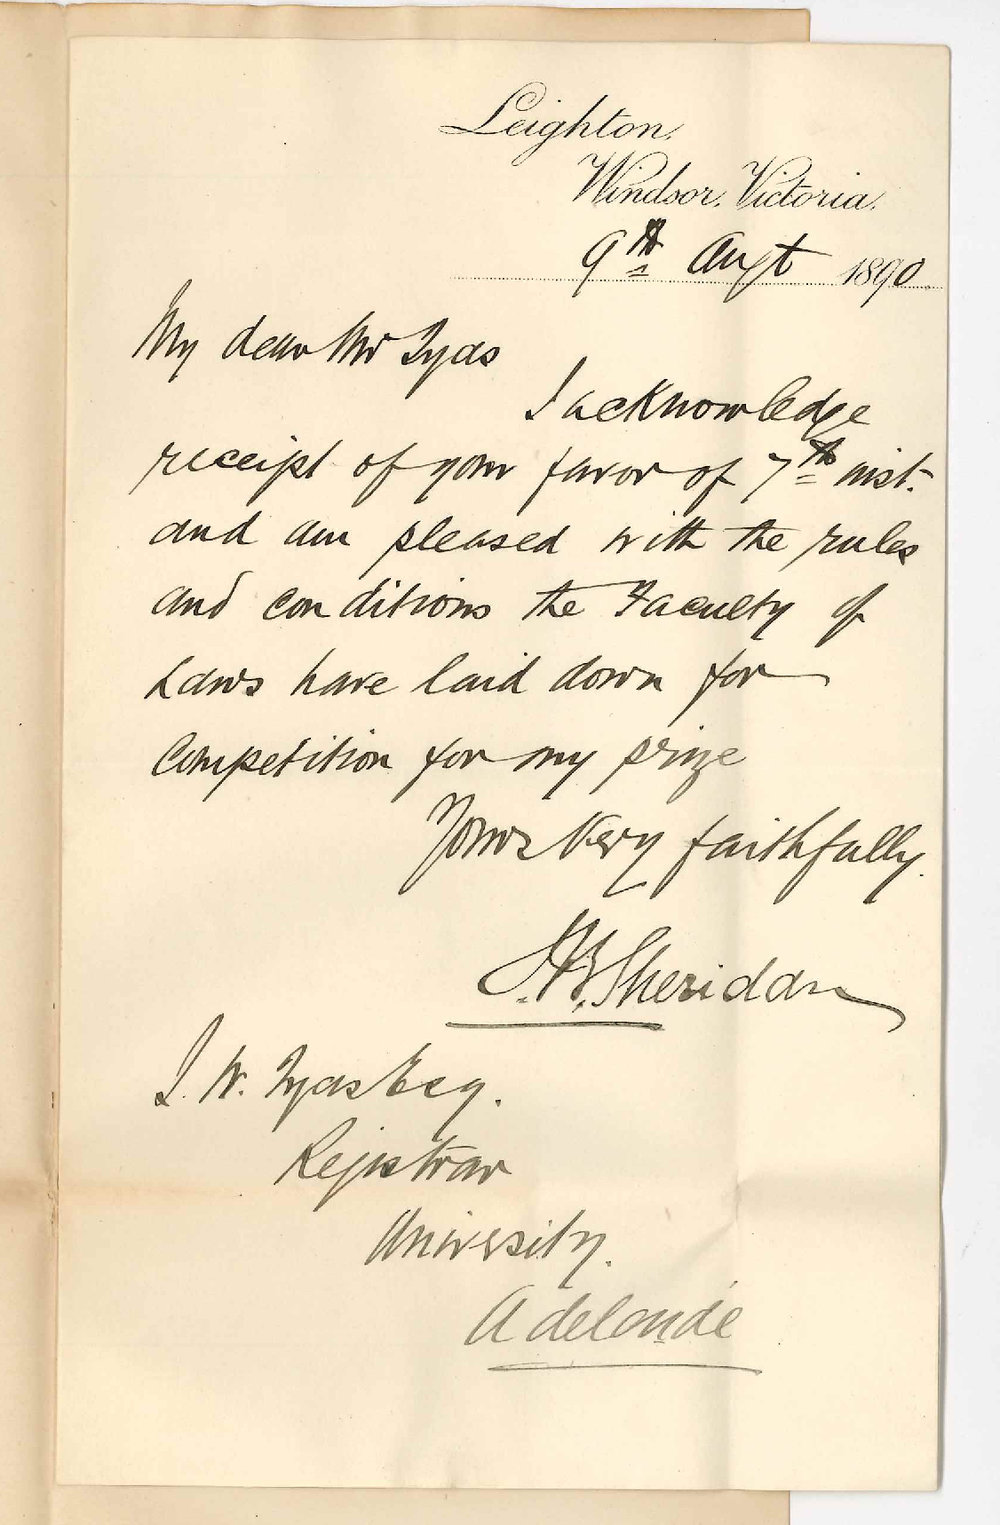 Leighton,
Windsor, Victoria.
9th Augt 1890.
My dear Mr Tyas
I acknowledge
receipt of your favor of 7th inst.
and am pleased with the rules
and conditions the Faculty of
Laws have laid down for
Competition for my prize
Yours Very faithfully.
J.B. Sheridan
J. W. Tyas Esq.
Registrar
University.
Adelaide